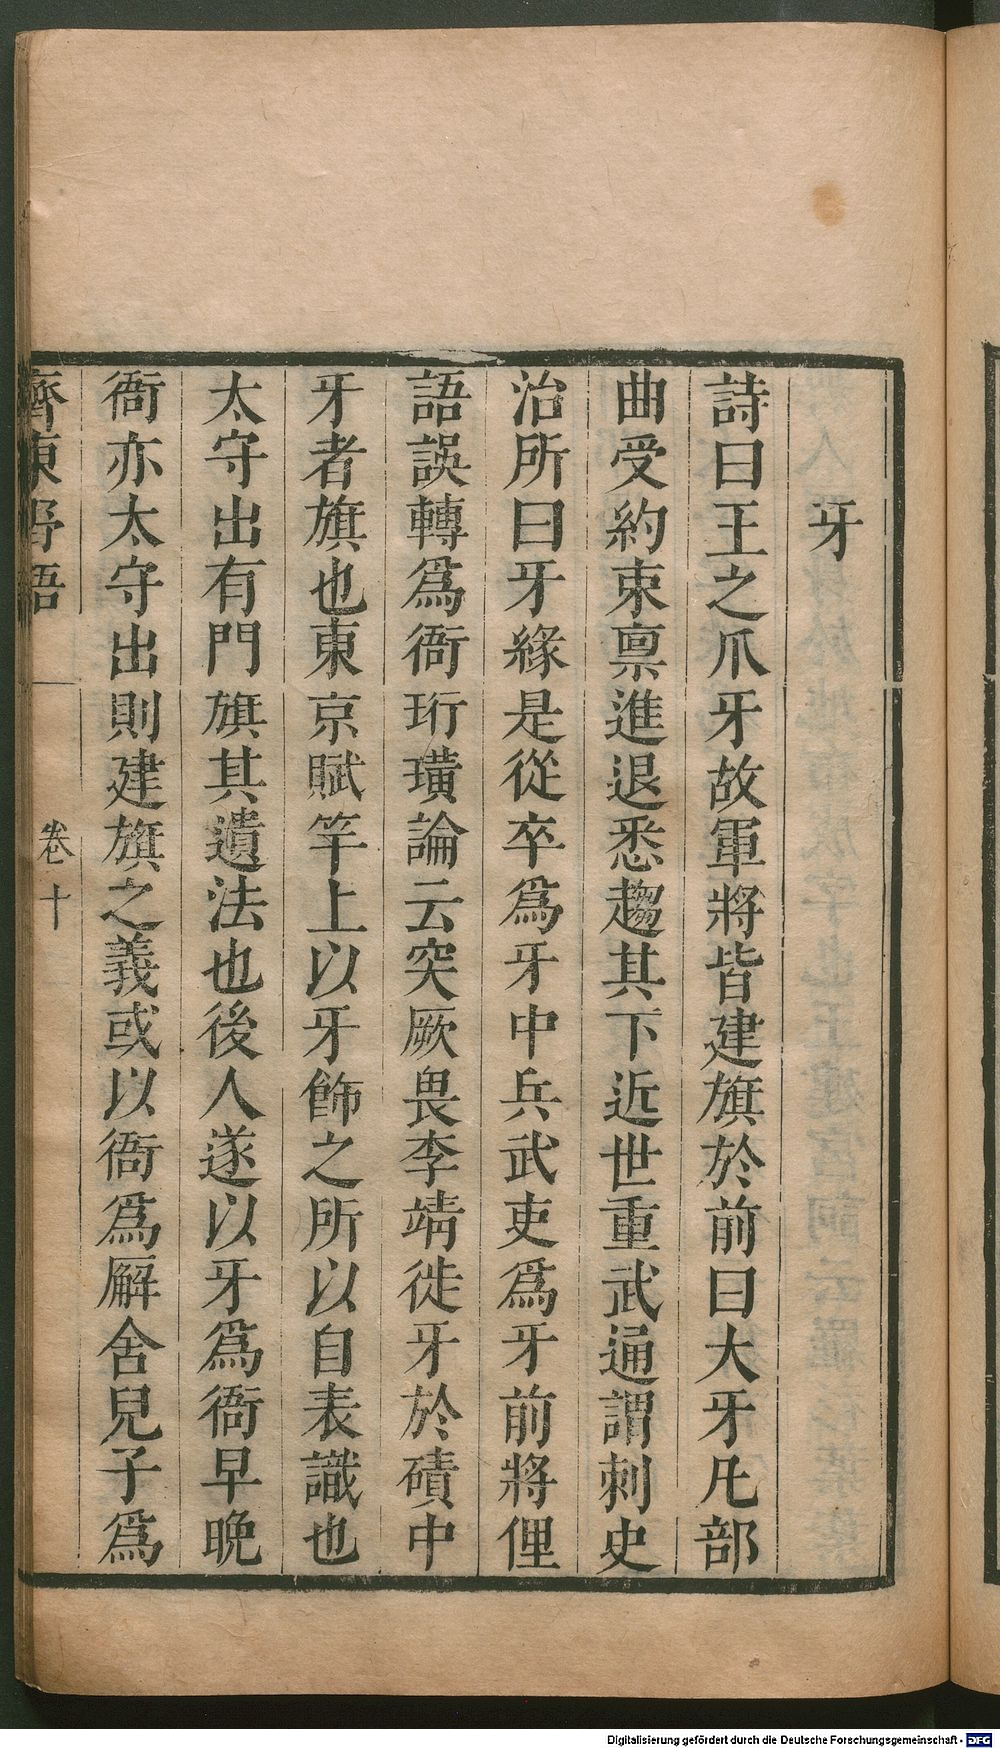 牙
詩曰王之爪牙故軍將皆建旗於前曰大牙凡部
曲受約束禀進退悉趨其下近世重武通謂刺史
治所曰牙緣是從卒爲牙中兵武吏爲牙前將俚
語誤轉爲衙珩璜論云突厥畏李靖徙牙於磧中
牙者旗也東京賦竿上以牙飾之所以自表識也
太守出有門旗其遺法也後人遂以牙爲衙早晚
衙亦太守出則建旗之義或以衙爲廨舍兒子爲
齊東野語 卷十
Digitalisierung gefördert durch die Deutsche Forschungsgemeinschaft - DFG